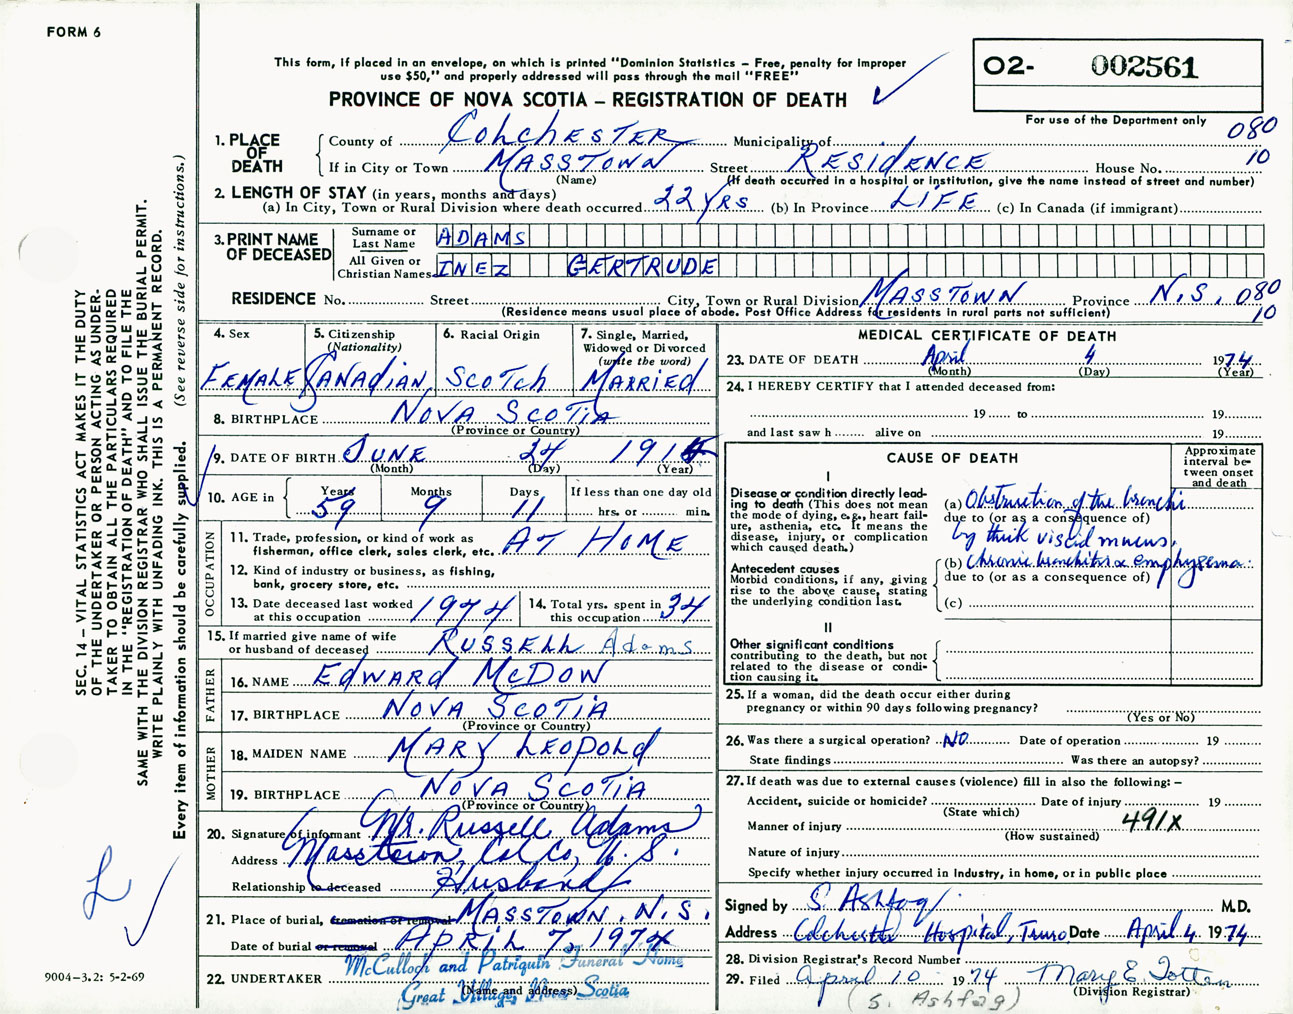 FORM 6
This form, if placed in an envelope, on which is printed "Dominion Statistics – Free, penalty for improper
use $50," and properly addressed will pass through the mail "FREE"
PROVINCE OF NOVA SCOTIA – REGISTRATION OF DEATH
O2- 002561
For use of the Department only
080
10
1. PLACE OF DEATH
County of COLCHESTER Municipality of
If in City or Town MASSTOWN Street RESIDENCE House No.
(Name) (If death occurred in a hospital or institution, give the name instead of street and number)
2. LENGTH OF STAY (in years, months and days)
(a) In City, Town or Rural Division where death occurred 22 YRS (b) In Province LIFE (c) In Canada (if immigrant)
3. PRINT NAME OF DECEASED
Surname or Last Name ADAMS
All Given or Christian Names INEZ GERTRUDE
RESIDENCE No. Street City, Town or Rural Division MASSTOWN Province N.S. 080
(Residence means usual place of abode. Post Office Address for residents in rural parts not sufficient) 10
4. Sex
FEMALE
5. Citizenship
(Nationality)
CANADIAN
6. Racial Origin
SCOTCH
7. Single, Married,
Widowed or Divorced
(write the word)
MARRIED
8. BIRTHPLACE NOVA SCOTIA
(Province or Country)
9. DATE OF BIRTH JUNE 24 191
(Month) (Day) (Year)
10. AGE in
Years Months Days If less than one day old
59 9 11 hrs. or min.
OCCUPATION
11. Trade, profession, or kind of work as
fisherman, office clerk, sales clerk, etc. AT HOME
12. Kind of industry or business, as fishing,
bank, grocery store, etc.
13. Date deceased last worked
at this occupation 1974
14. Total yrs. spent in
this occupation 34
15. If married give name of wife
or husband of deceased RUSSELL Adams
FATHER
16. NAME EDWARD McDOW
17. BIRTHPLACE NOVA SCOTIA
(Province or Country)
MOTHER
18. MAIDEN NAME MARY LEOPOLD
19. BIRTHPLACE NOVA SCOTIA
(Province or Country)
20. Signature of informant Mr. Russell Adams
Address Masstown, Col. Co, N.S.
Relationship to deceased Husband
21. Place of burial, cremation or removal MASSTOWN. N.S.
Date of burial or removal APRIL 7, 1974
22. UNDERTAKER McCulloch and Patriquin Funeral Home
(Name and address)
Great Village, Nova Scotia
MEDICAL CERTIFICATE OF DEATH
23. DATE OF DEATH April 4 1974
(Month) (Day) (Year)
24. I HEREBY CERTIFY that I attended deceased from:
19 to 19
and last saw h alive on 19
CAUSE OF DEATH
Approximate
interval be-
tween onset
and death
I
Disease or condition directly lead-
ing to death (This does not
mean the mode of dying, e.g., heart fail-
ure, asthenia, etc. It means the
disease, injury, or complication
which caused death.)
(a) Obstruction of the bronchi
due to (or as a consequence of)
by thick viscid mucus.
Antecedent causes
Morbid conditions, if any, giving
rise to the above cause, stating
the underlying condition last.
(b) chronic bronchitis & emphysema.
due to (or as a consequence of)
(c)
II
Other significant conditions
contributing to the death, but not
related to the disease or condi-
tion causing it.
25. If a woman, did the death occur either during
pregnancy or within 90 days following pregnancy?
(Yes or No)
26. Was there a surgical operation? NO Date of operation 19
State findings Was there an autopsy?
27. If death was due to external causes (violence) fill in also the following: –
Accident, suicide or homicide? Date of injury 19
(State which)
Manner of injury 491X
(How sustained)
Nature of injury
Specify whether injury occurred in industry, in home, or in public place
Signed by S. Ashfaq M.D.
Address Colchester Hospital, Truro Date April 4 1974
28. Division Registrar's Record Number
29. Filed April 10 1974 Mary E. Totten
(Division Registrar)
(S. Ashfaq)
SEC. 14 – VITAL STATISTICS ACT MAKES IT THE DUTY
OF THE UNDERTAKER OR PERSON ACTING AS UNDER-
TAKER TO OBTAIN ALL THE PARTICULARS REQUIRED
IN THE "REGISTRATION OF DEATH" AND TO FILE THE
SAME WITH THE DIVISION REGISTRAR WHO SHALL ISSUE THE BURIAL PERMIT.
WRITE PLAINLY WITH UNFADING INK. THIS IS A PERMANENT RECORD.
Every item of information should be carefully supplied. (See reverse side for instructions.)
9004-3.2: 5-2-69